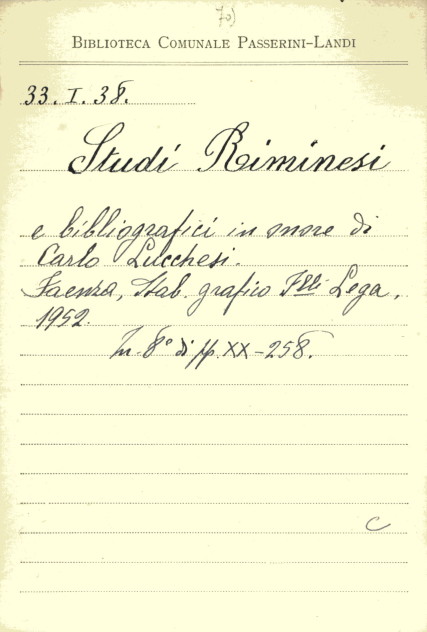 70)
BIBLIOTECA COMUNALE PASSERINI-LANDI
33. I. 38.
Studi Riminesi
e bibliografici in onore di
Carlo Lucchesi.
Faenza, Stab. grafico F.lli Lega,
1952.
In-8° di pp. XX-258.
C